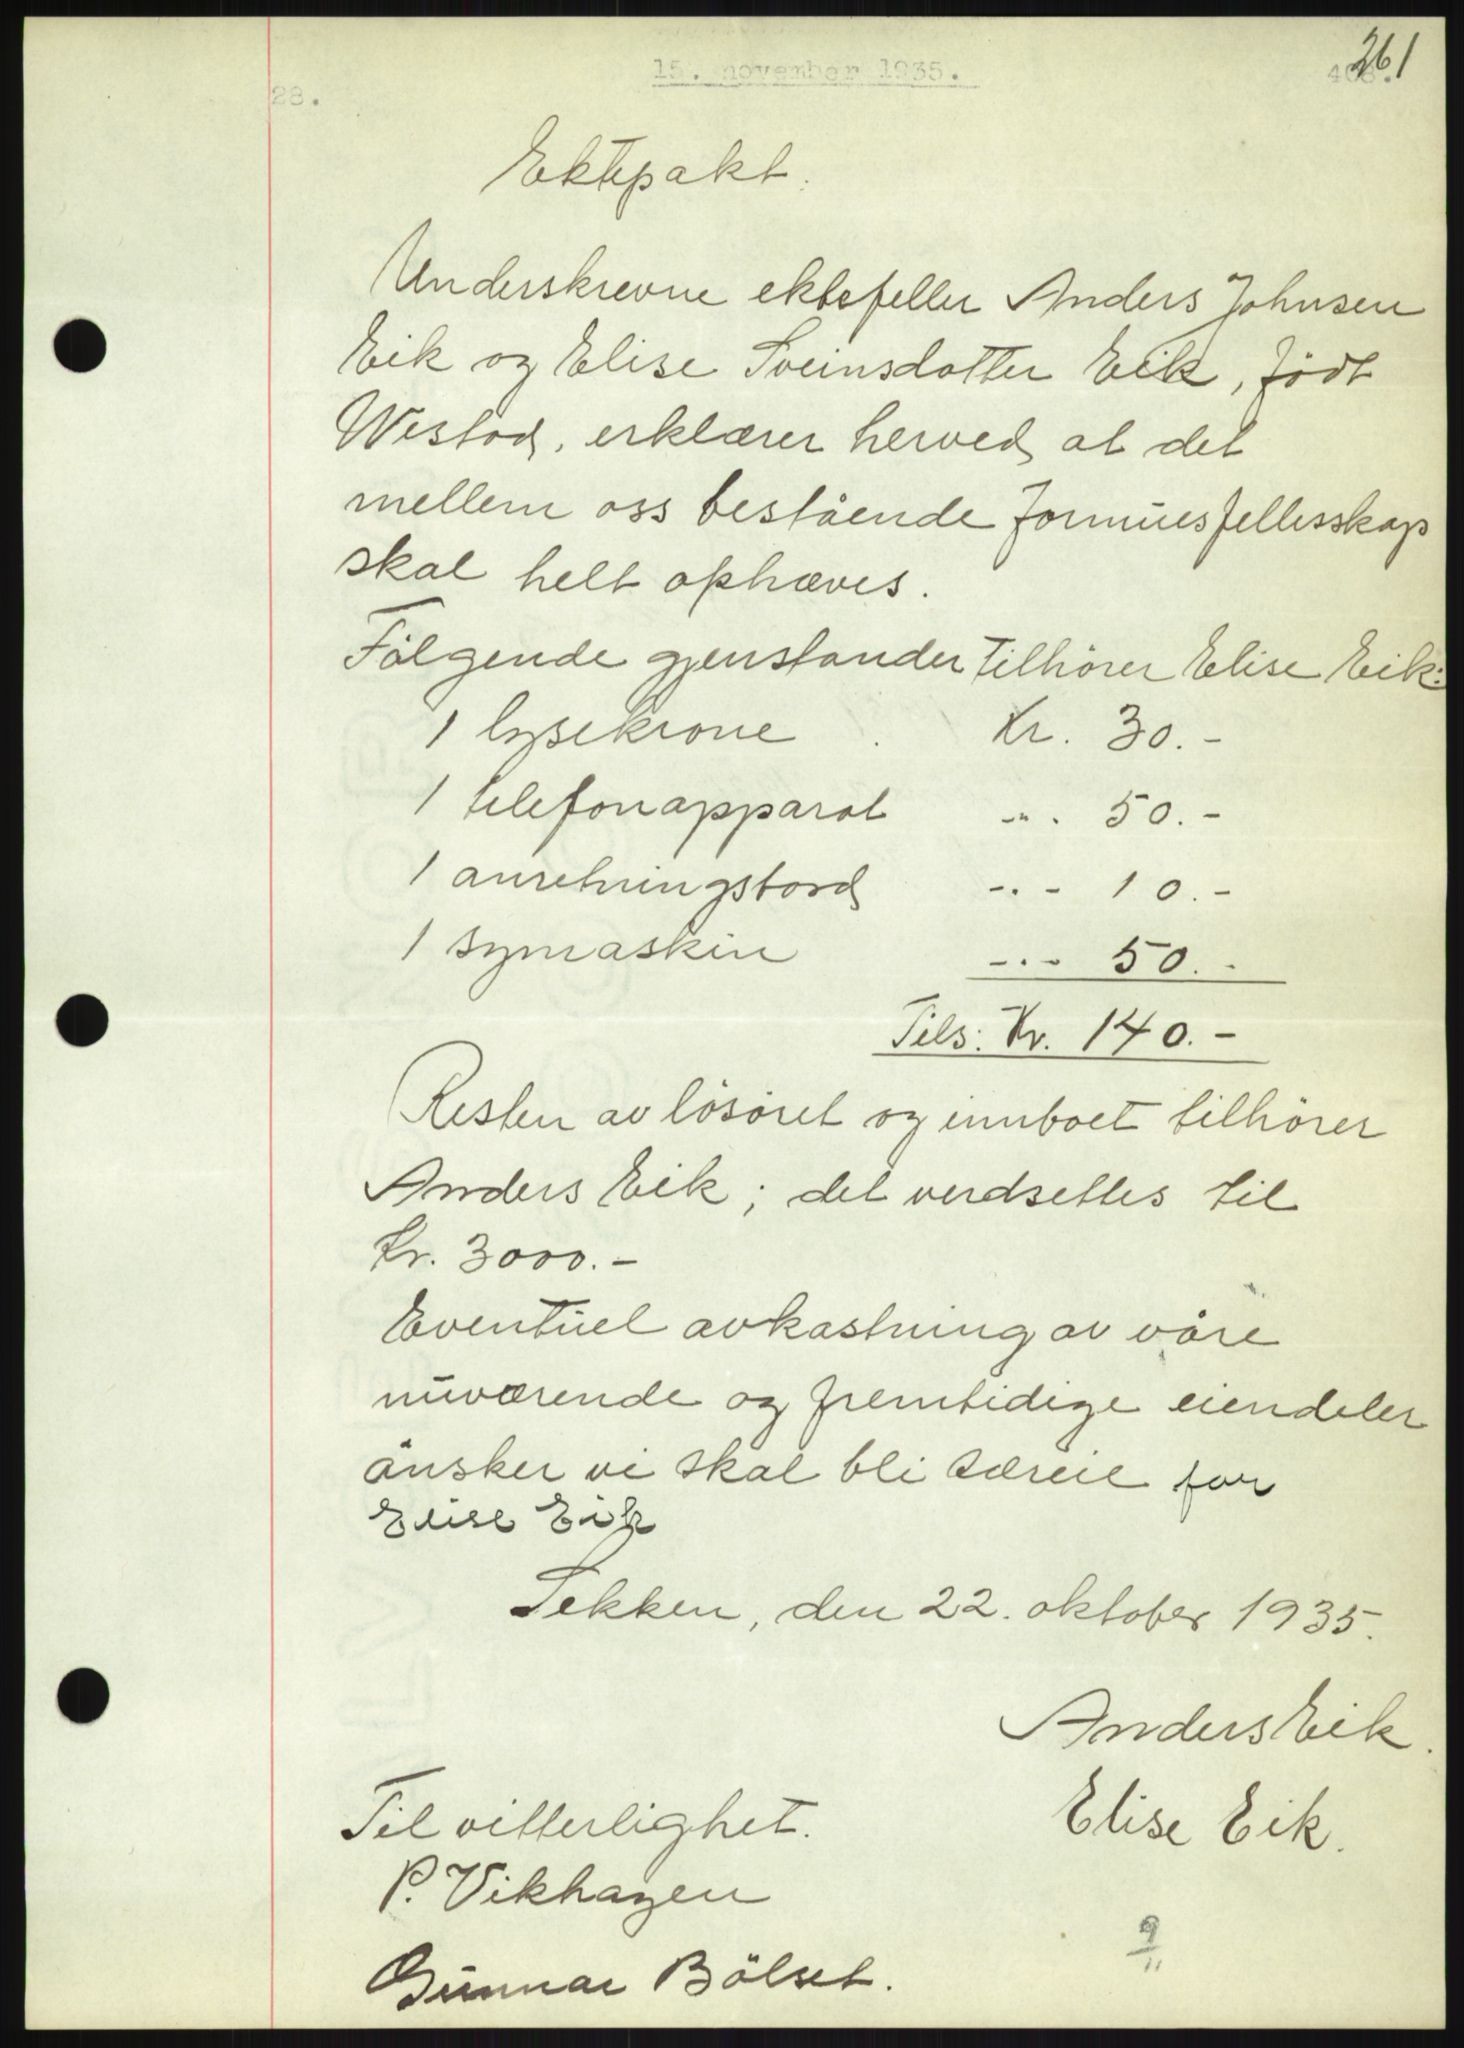 261
15. november 1935.
28.
Ektepakt.
Underskrevne ektefeller Anders Johnsen
Eik og Elise Sveinsdotter Eik, född
Westad, erklærer herved, at det
mellem oss bestående formuesfellesskap
skal helt ophæves.
Følgende gjenstander tilhörer Elise Eik:
1 lysekrone Kr. 30.-
1 telefonapparat -"- 50.-
1 anretningsbord -"- 10.-
1 symaskin -"- 50.-
Tils: Kr. 140.-
Resten av lösöret og innboet tilhörer
Anders Eik; det verdsettes til
Kr. 3000.-
Eventuel avkastning av våre
nuværende og fremtidige eiendeler
önsker vi skal bli særeie for
Elise Eik
Sekken, den 22. oktober 1935.
Anders Eik.
Elise Eik.
Til vitterlighet.
P. Vikhagen
Gunnar Bölset.
9/11